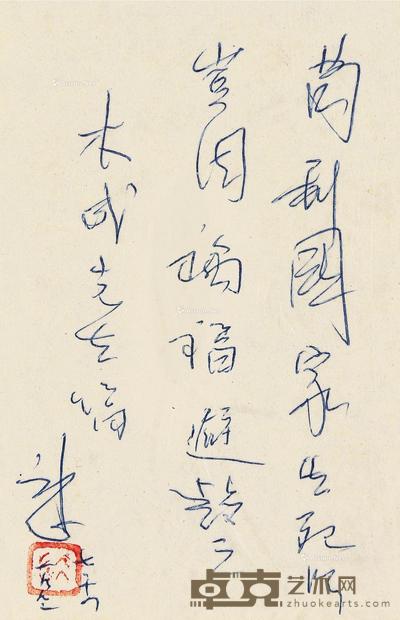 苟利國家生死以
豈因禍福避趨之
木成先生嘱
卓克艺术网
zhuokearts.com